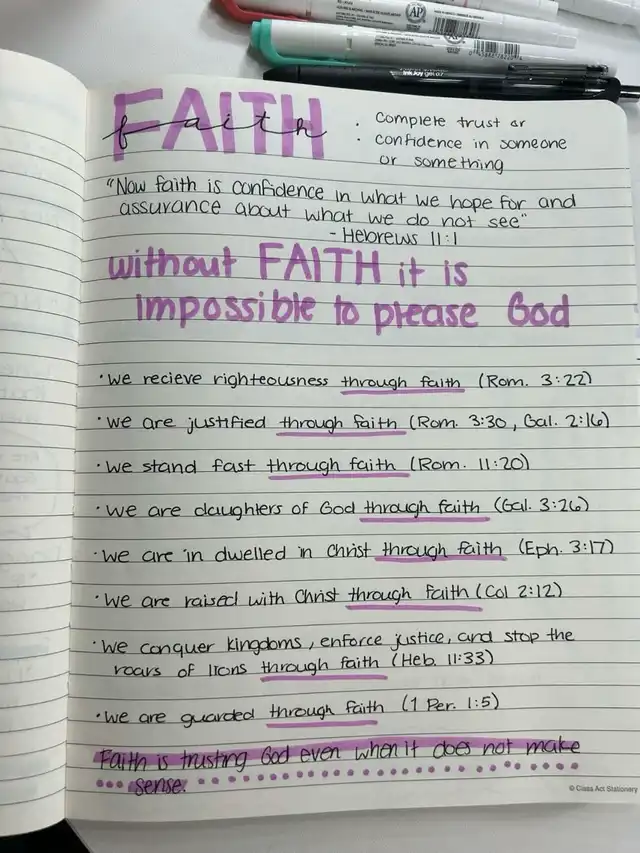 AP
InkJoy gel 0.7
FAITH
faith
· Complete trust or
· confidence in someone
or something
"Now faith is confidence in what we hope for and
assurance about what we do not see"
- Hebrews 11:1
without FAITH it is
impossible to please God
· we recieve righteousness through faith (Rom. 3:22)
· we are justified through faith (Rom. 3:30, Gal. 2:16)
· we stand fast through faith (Rom. 11:20)
· we are daughters of God through faith (Gal. 3:26)
· we are in dwelled in Christ through faith (Eph. 3:17)
· we are raised with Christ through faith (Col 2:12)
· we conquer kingdoms, enforce justice, and stop the
roars of lions through faith (Heb. 11:33)
· we are guarded through faith (1 Per. 1:5)
Faith is trusting God even when it does not make
sense.
© Class Act Stationery